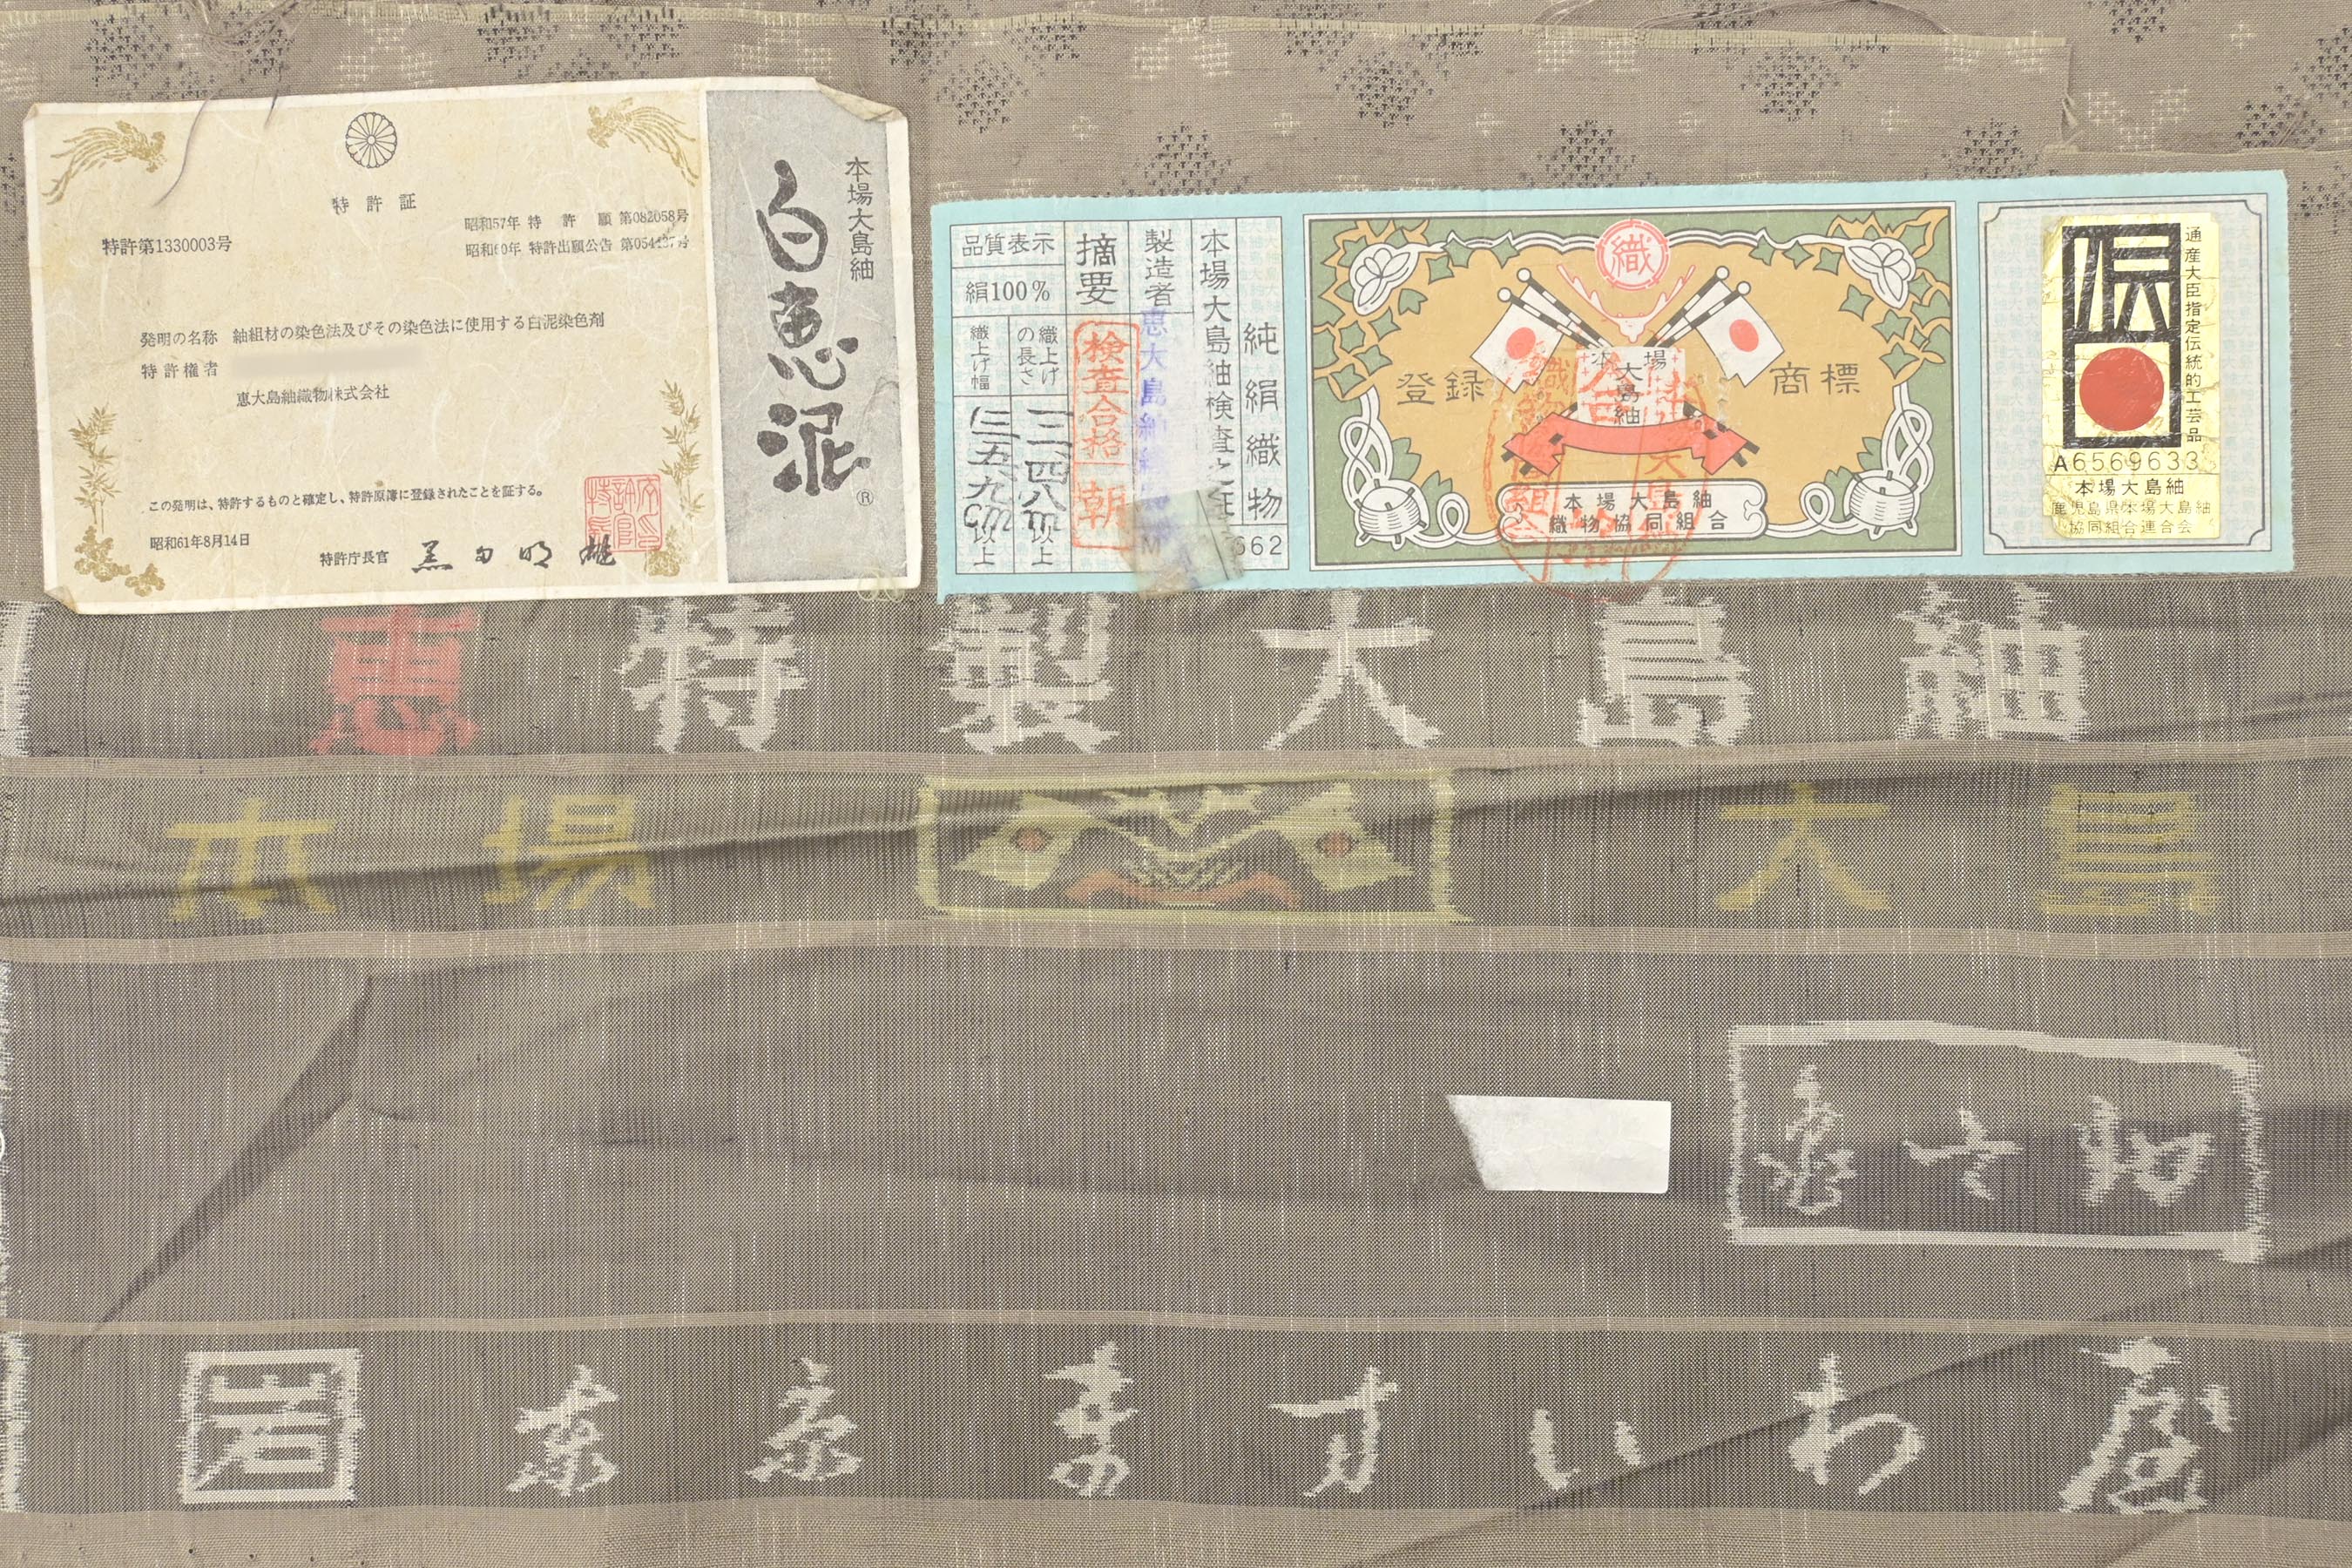 特許証
特許第1330003号
昭和57年 特 許 願 第082058号
昭和60年 特許出願公告 第054437号
発明の名称 紬組材の染色法及びその染色法に使用する白泥染色剤
特許権者
恵大島紬織物株式会社
この発明は、特許するものと確定し、特許原簿に登録されたことを証する。
昭和61年8月14日
特許庁長官 黒田明雄
特許庁長官
本場大島紬
白恵泥®
純絹織物
本場大島紬検査之証
662
製造者
恵大島紬
摘要
検査合格
朝
品質表示
絹100%
織上げの長さ
一二、四八m以上
織上げ幅
三五、九cm以上
織
登録
商標
本場
大島紬
合
本場大島紬
織物協同組合
伝
通産大臣指定伝統的工芸品
A6569633
本場大島紬
鹿児島県本場大島紬
協同組合連合会
恵特製大島紬
本場
大島
岩 東京ますいわ屋